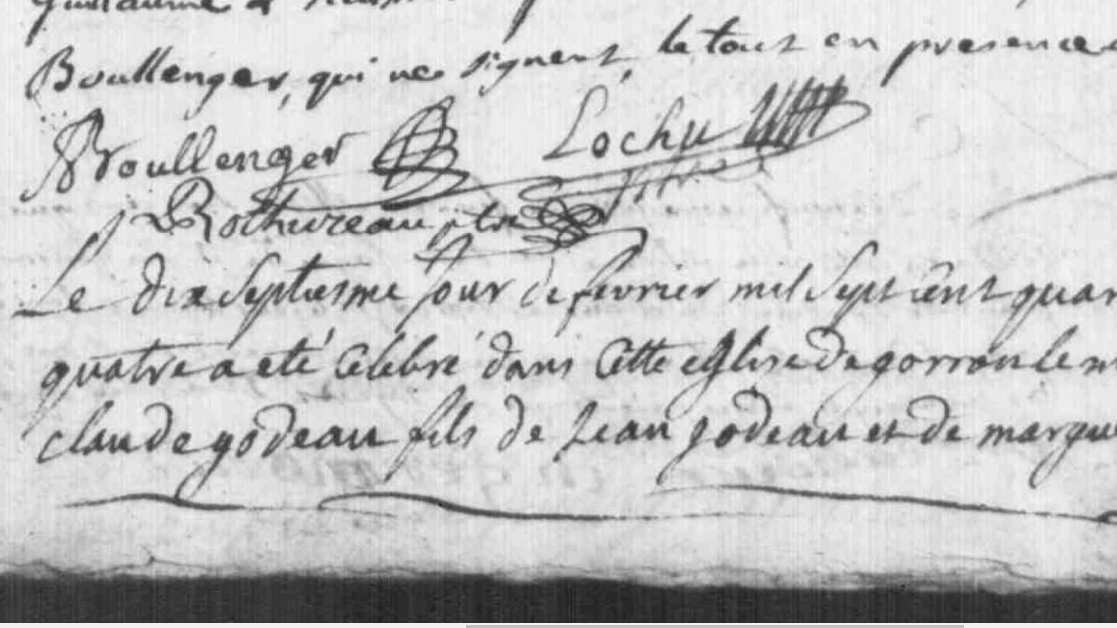 Guillaume
Boullenger, qui ne signent, le tout en presence
Boullenger Lochu
Rochereau
Le dix septiesme jour de fevrier mil sept cent quar
quatre a eté Celebré dans Cette eglise de gorron le m
claude godeau fils de Jean godeau et de margu